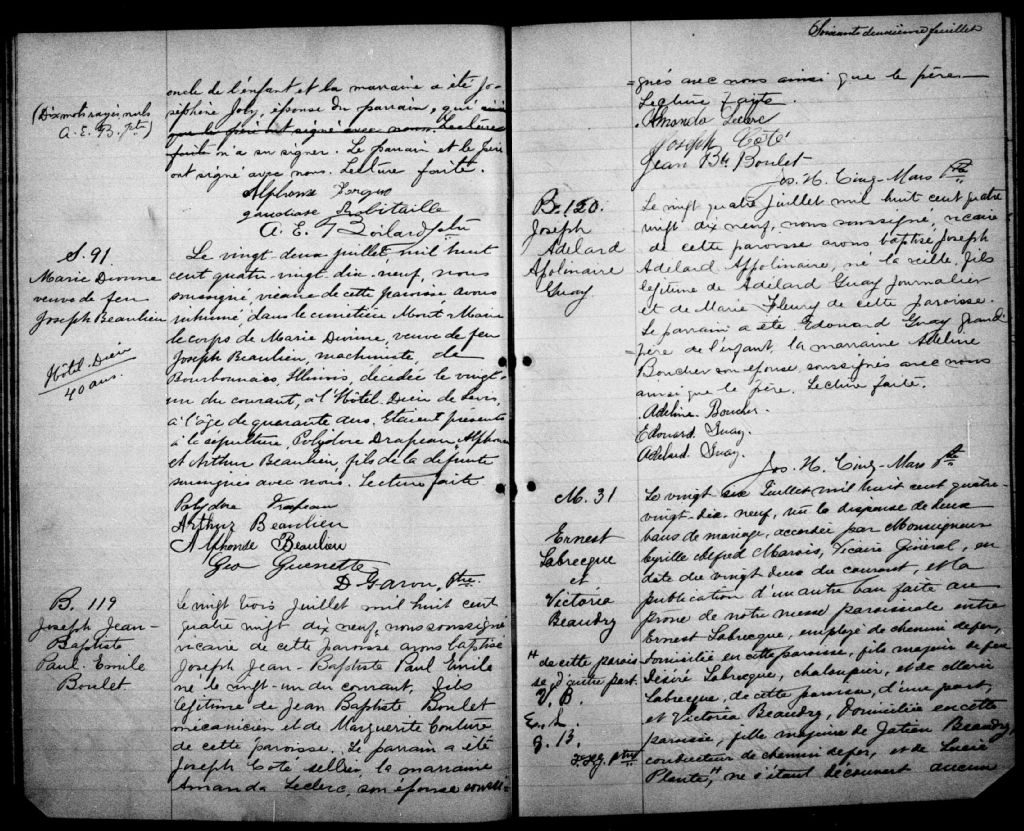 oncle de l'enfant et la marraine a été Jo-
séphine Joly, épouse du parrain, qui ainsi
que le père ont signé avec nous. Lecture
faite n'a su signer. Le parrain et le père
ont signé avec nous. Lecture faite.
(Dix mots rayés nuls
A. E. B. ptre)
Alphonse
Robitaille
A. E. Boilard ptre
S. 91.
Marie Divinne
veuve de feu
Joseph Beaulieu
Hôtel-Dieu
40 ans.
Le vingt deux juillet, mil huit
cent quatre-vingt-dix-neuf, nous
soussigné, vicaire de cette paroisse avons
inhumé, dans le cimetière Mont-Marie
le corps de Marie Divinne, veuve de feu
Joseph Beaulieu, machiniste, de
Bourbonnais, Illinois, décédée le vingt-
un du courant, à l'Hôtel-Dieu de Levis,
à l'âge de quarante ans. Etaient présents
à la sépulture, Polydore Drapeau, Alphonse
et Arthur Beaulieu, fils de la défunte
soussignés avec nous. Lecture faite
Polydore Drapeau
Arthur Beaulieu
Alphonse Beaulieu
Geo Guenette
D. Garon, Ptre.
B. 119
Joseph Jean-
Baptiste
Paul-Emile
Boulet
Le vingt trois juillet mil huit cent
quatre vingt dix neuf, nous soussigné
vicaire de cette paroisse avons baptisé
Joseph Jean-Baptiste Paul Emile
né le vingt-un du courant, fils
légitime de Jean Baptiste Boulet
mécanicien et de Marguerite Couture
de cette paroisse. Le parrain a été
Joseph Coté sellier, la marraine
Amanda Leclerc, son épouse soussi-
Soixante deuxième feuillet
=gnés avec nous ainsi que le père
Lecture faite.
Amanda Leclerc
Joseph Coté
Jean Bte Boulet
Jos. H. Cinq-Mars Ptre
B. 120.
Joseph
Adelard
Apolinaire
Guay
Le vingt quatre juillet mil huit cent quatre
vingt dix neuf, nous soussigné, vicaire
de cette paroisse avons baptisé, Joseph
Adelard Appolinaire, né la veille, fils
légitime de Adélard Guay journalier
et de Marie Fleury de cette paroisse.
Le parrain a été Edouard Guay grand-
=père de l'enfant, la marraine Adeline
Boucher son épouse, soussignés avec nous
ainsi que le père. Lecture faite.
Adeline Boucher.
Edouard Guay.
Adelard Guay.
Jos. H. Cinq-Mars ptre
M. 31
Ernest
Labrecque
et
Victoria
Beaudry
Le vingt six Juillet mil huit cent quatre-
vingt-dix-neuf, vu la dispense de deux
bans de mariage, accordée par Monseigneur
Cyrille Alfred Marois, Vicaire Général, en
date du vingt deux du courant, et la
publication d'un autre ban faite au
prône de notre messe paroissiale entre
Ernest Labrecque, employé de chemin de fer,
domicilié en cette paroisse, fils majeur de feu
Désiré Labrecque, chaloupier, et de
Labrecque, de cette paroisse, d'une part,
et Victoria Beaudry, Domiciliée en cette
paroisse, fille majeure de Beaudry,
conducteur de chemin de fer, et de Lucie
Plante,# ne s'étant découvert aucun
# de cette parois
se d'autre part.
V. B.
E. L.
J. B.
Ptre